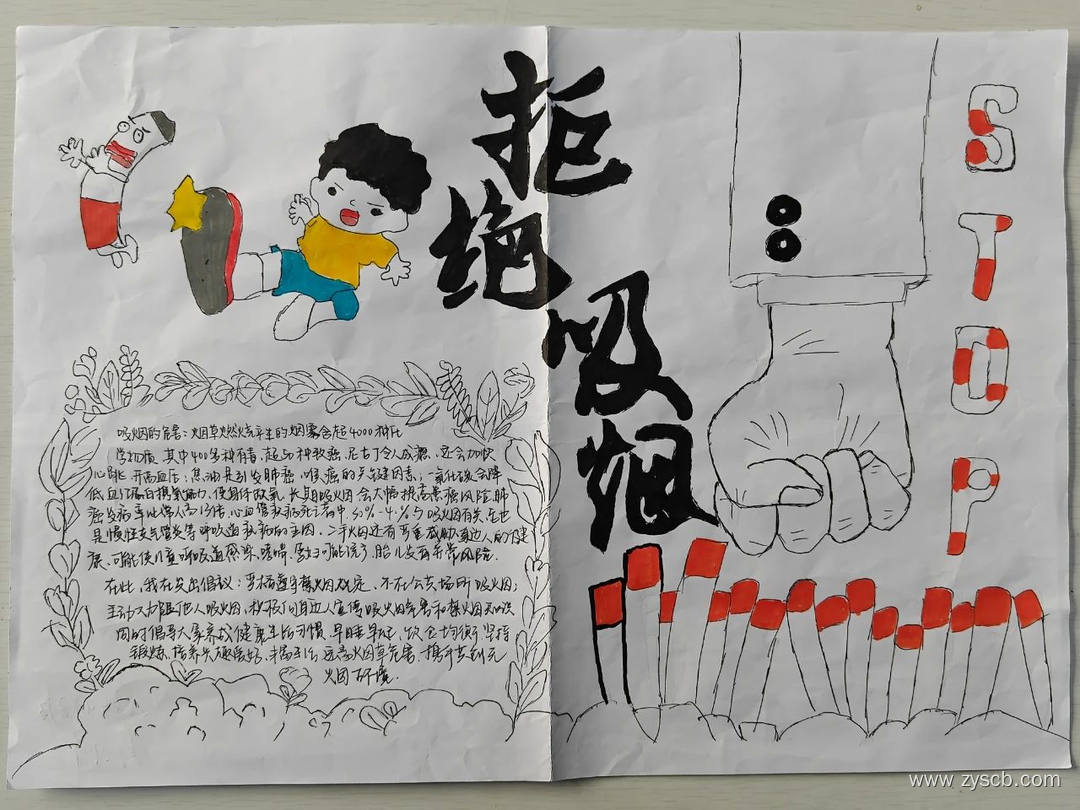 拒绝吸烟
STOP
吸烟的危害：烟草燃烧产生的烟雾含超4000种化
学物质，其中400多种有毒，超50种致癌，尼古丁令人成瘾，还会加快
心跳，升高血压；焦油是引发肺癌、喉癌的关键因素；一氧化碳会降
低血红蛋白携氧能力，使身体缺氧。长期吸烟会大幅提高患癌风险，肺
癌发病率比常人高 倍，心血管疾病死亡者中 与吸烟有关，它也
是慢性支气管炎等呼吸道疾病的主因。二手烟还有严重威胁身边人的健
康，可能使儿童呼吸道感染、哮喘，孕妇可能流产、胎儿发育异常风险。
在此，我在发出倡议：严格遵守禁烟规定，不在公共场所吸烟；
主动 他人吸烟，积极向身边人宣传吸烟危害和禁烟
同时倡导大家养成健康生活习惯，早睡早起，饮食均衡，坚持
锻炼，培养兴趣爱好， 远离烟草危害，携手共创无
烟环境。
www.zyscb.com